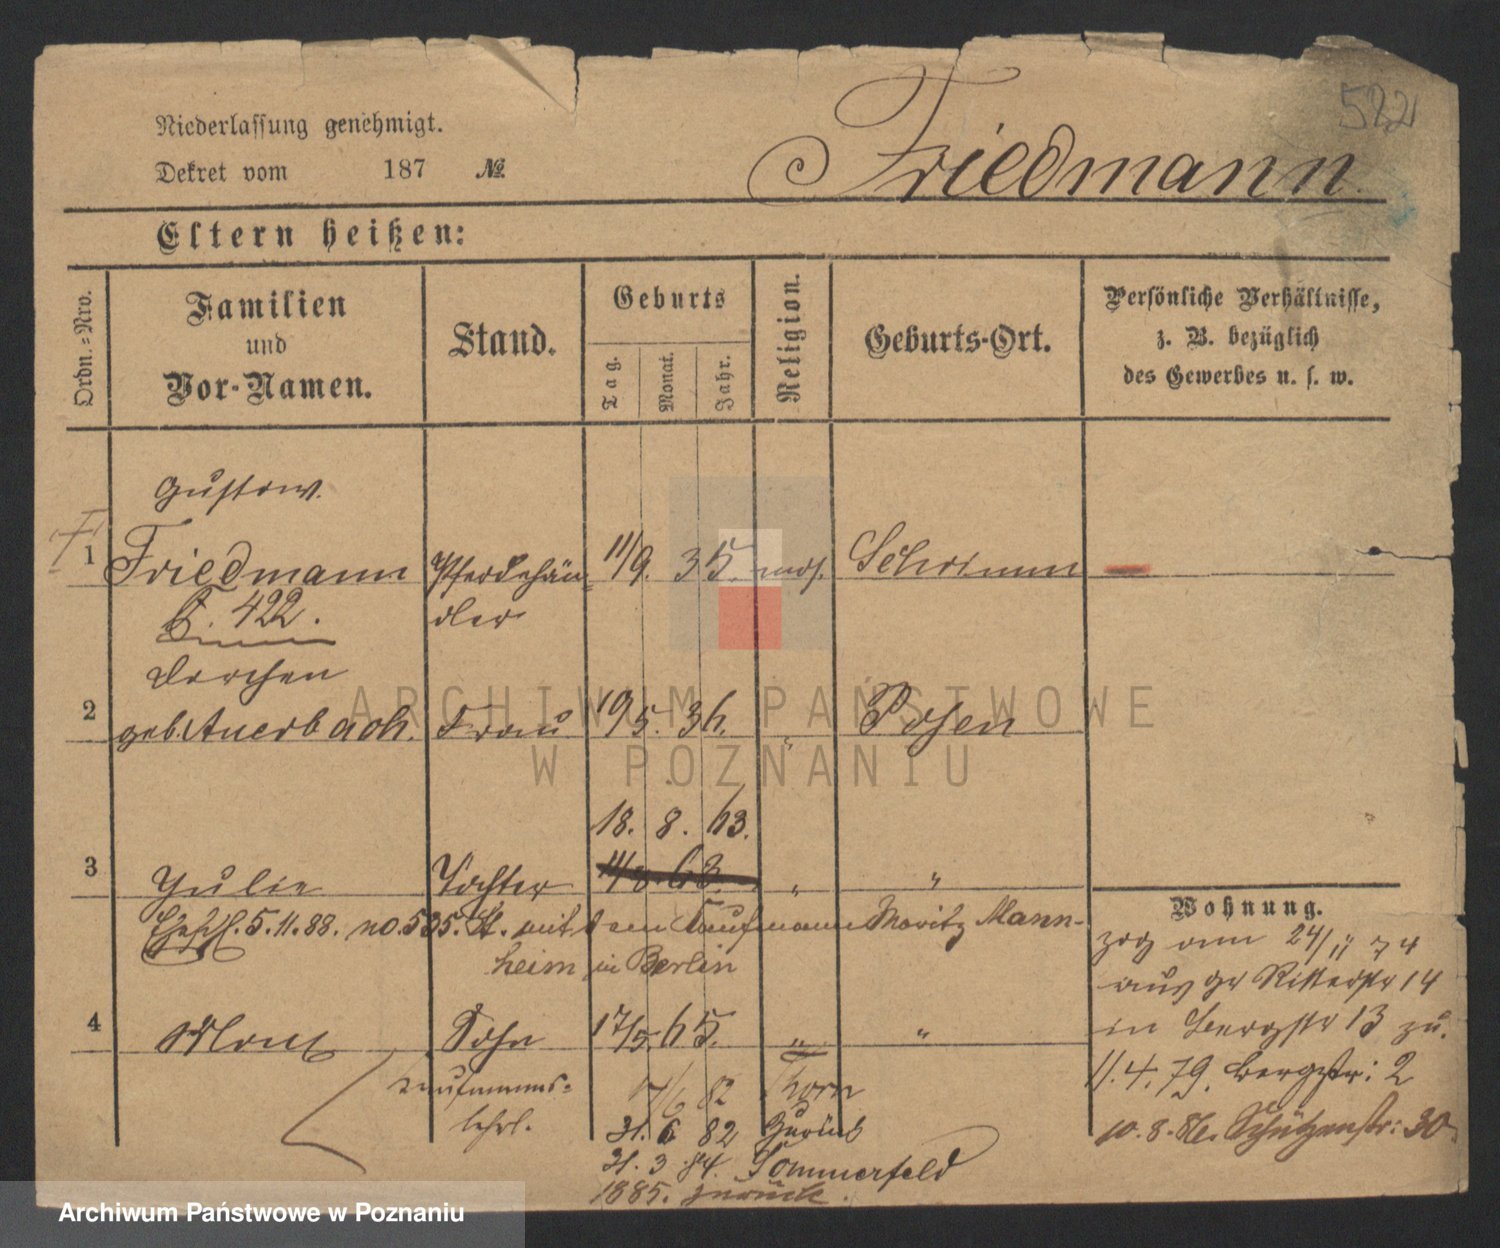 522
Niederlassung genehmigt.
Dekret vom 187 №
Friedmann
Eltern heißen:
Ordn.=Nro.
Familien
und
Vor-Namen.
Stand.
Geburts
Tag.
Monat.
Jahr.
Religion.
Geburts-Ort.
Persönliche Verhältnisse,
z. B. bezüglich
des Gewerbes u. s. w.
Gustav.
1 Friedmann Pferdehän= 11/9. 35. mos. Schrimm —
422. dler
Dorchen
2 geb. Auerbach. Frau 19/5. 36. " Posen
18. 8. 63.
3 Julie Tochter 11/8. 63. " "
5. 11. 88. no. 535. St. mit dem Kaufmann Moritz Mann-
heim in Berlin
4 Max Sohn 17/5. 65. " "
Kaufmanns=
lehrl.
17/6 82 Thorn
31. 6 82 Zurück
31. 3 84. Sommerfeld
1885. zurück.
Wohnung.
zog am 24/11 74
aus gr Ritterstr 14
in Bergstr 13 zu.
11. 4. 79. Bergstr: 2
10. 8. 86. Schützenstr: 30
ARCHIWUM PAŃSTWOWE
W POZNANIU
Archiwum Państwowe w Poznaniu